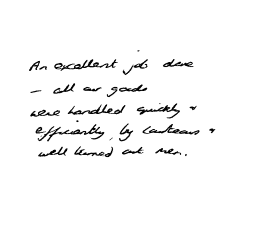 An excellent job done
– all our goods
were handled quickly &
efficiently, by courteous &
well turned out men.